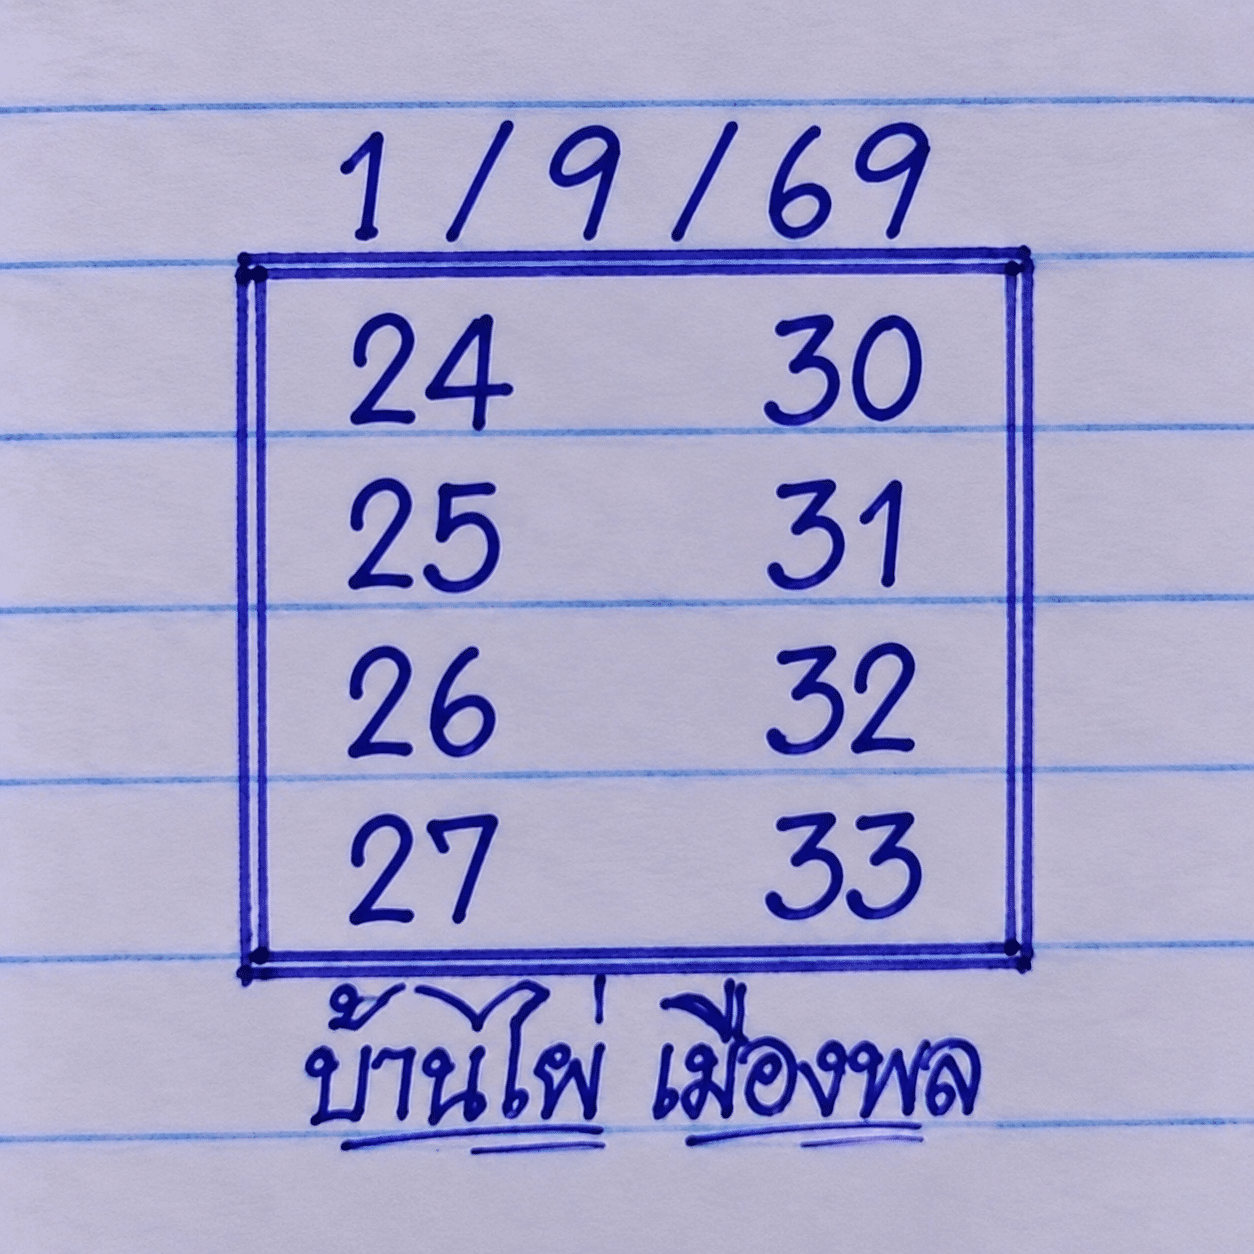 1/9/69
24 30
25 31
26 32
27 33
บ้านไผ่ เมืองพล